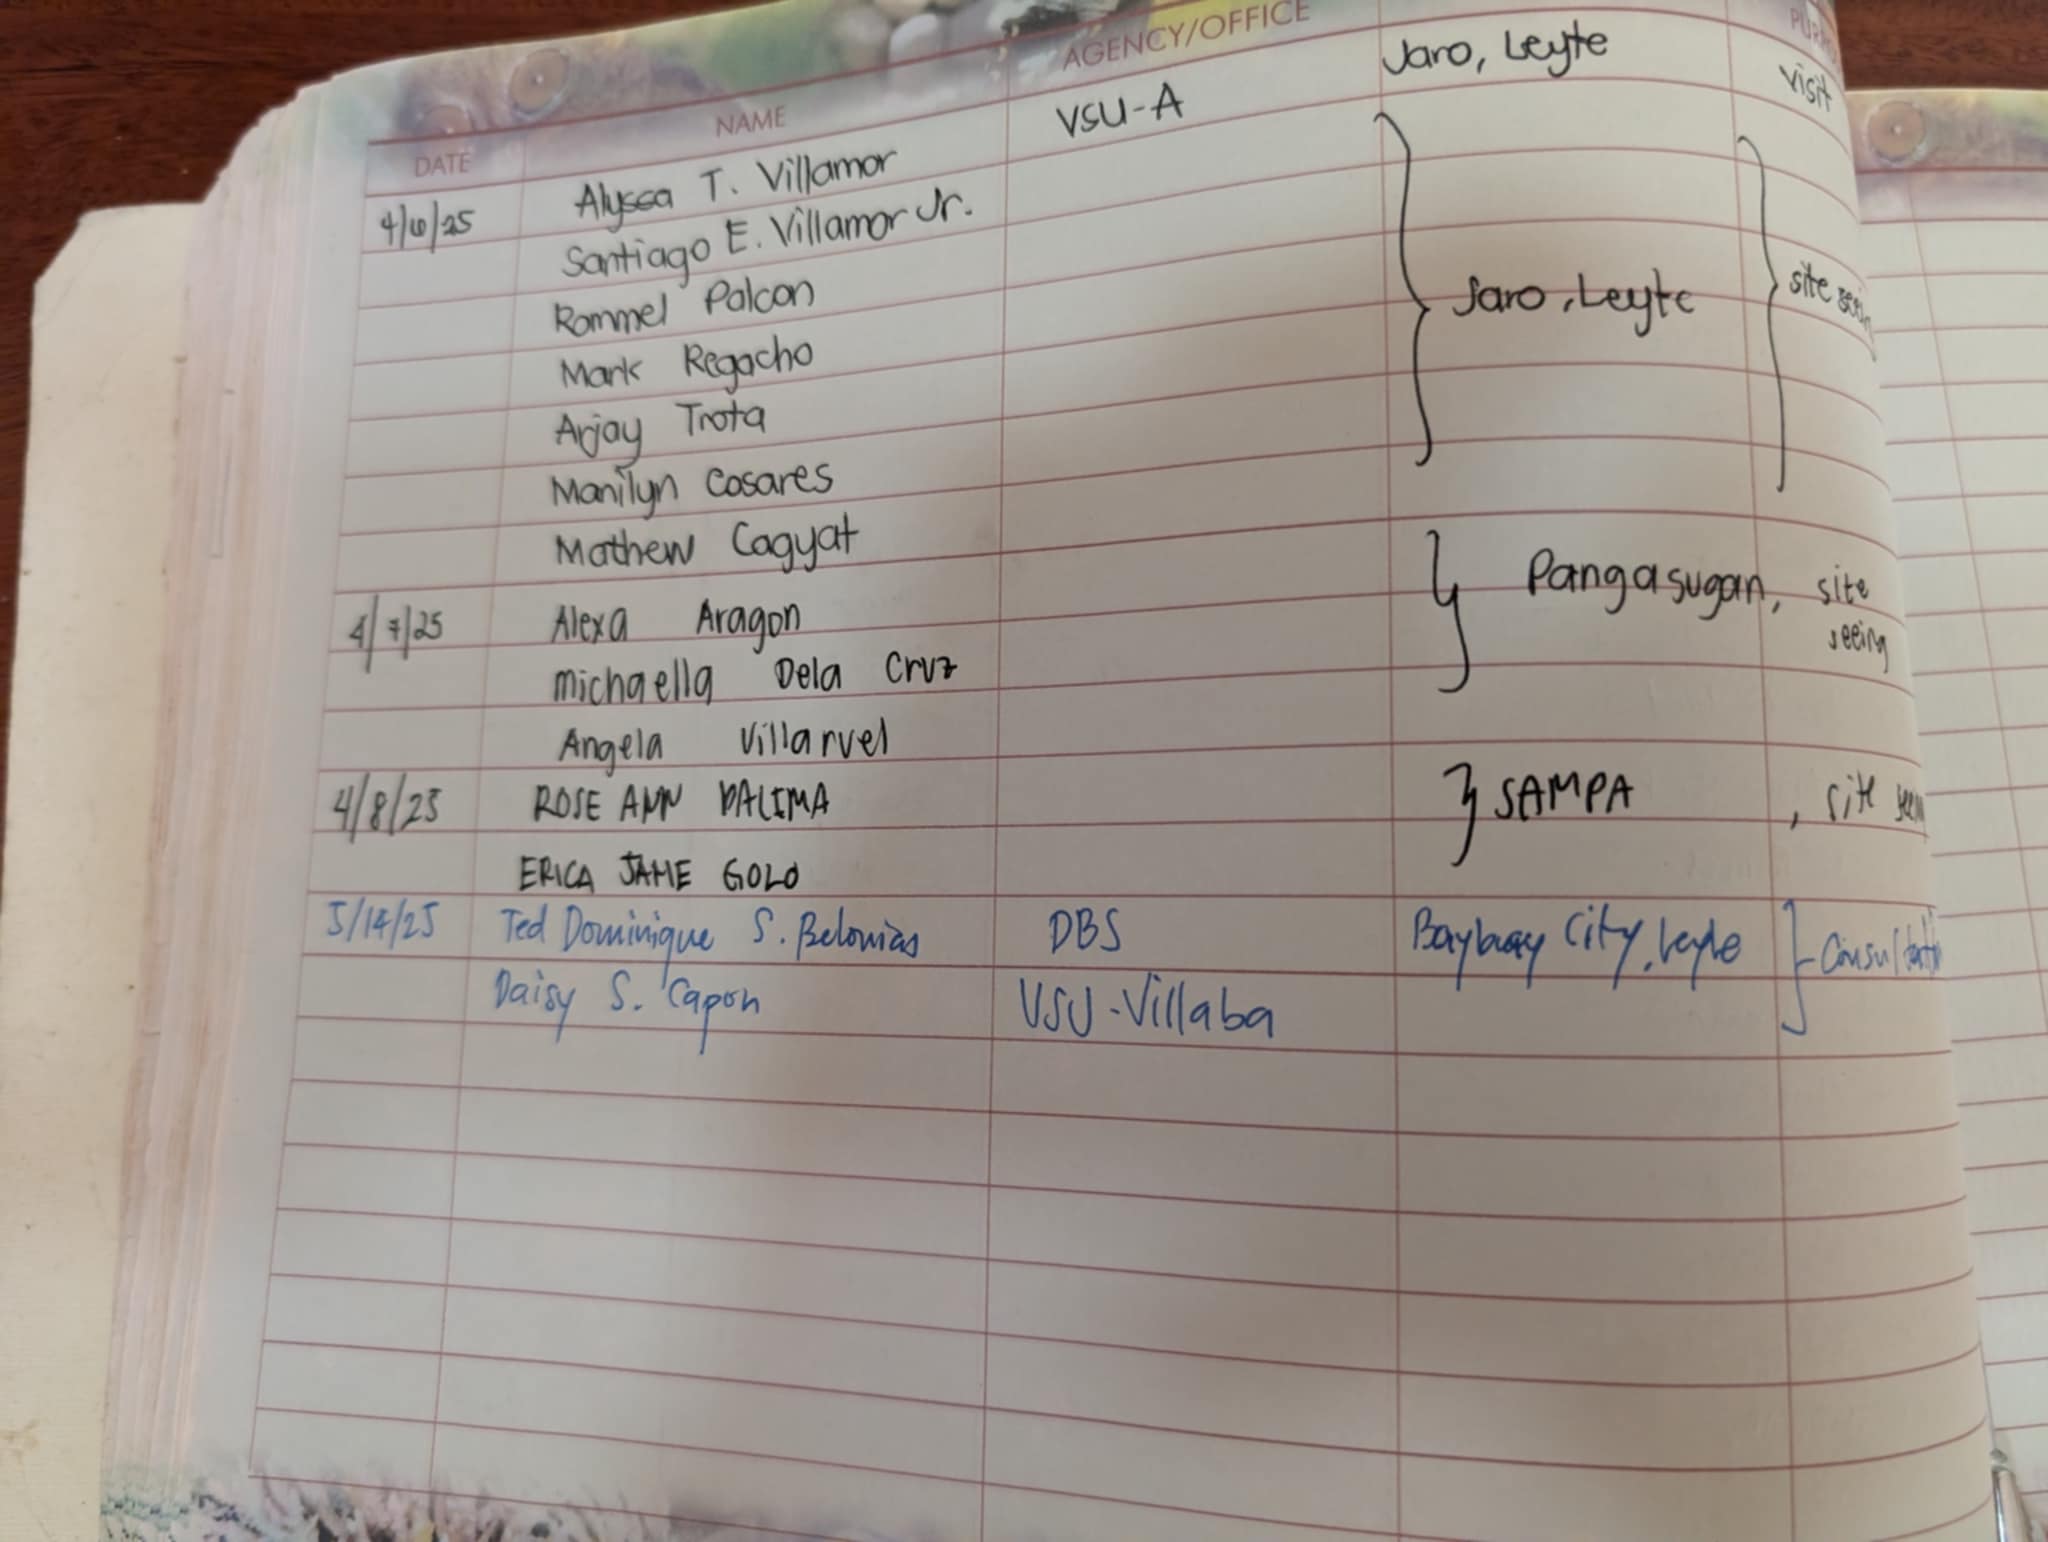 DATE NAME AGENCY/OFFICE
4/6/25 Alyssa T. Villamor VSU-A Jaro, Leyte visit
Santiago E. Villamor Jr.
Rommel Palcon
Mark Regacho Jaro, Leyte site
Arjay Trota
Manilyn Cosares
Mathew Cagyat
4/7/25 Alexa Aragon Pangasugan, site
seeing
Michaella Dela Cruz
Angela Villarvel
4/8/25 ROSE ANN DALIMA SAMPA , site
ERICA JANE GOLO
5/14/25 Ted Dominique S. Belonias DBS Baybay City, Leyte
Daisy S. Capon VSU-Villaba